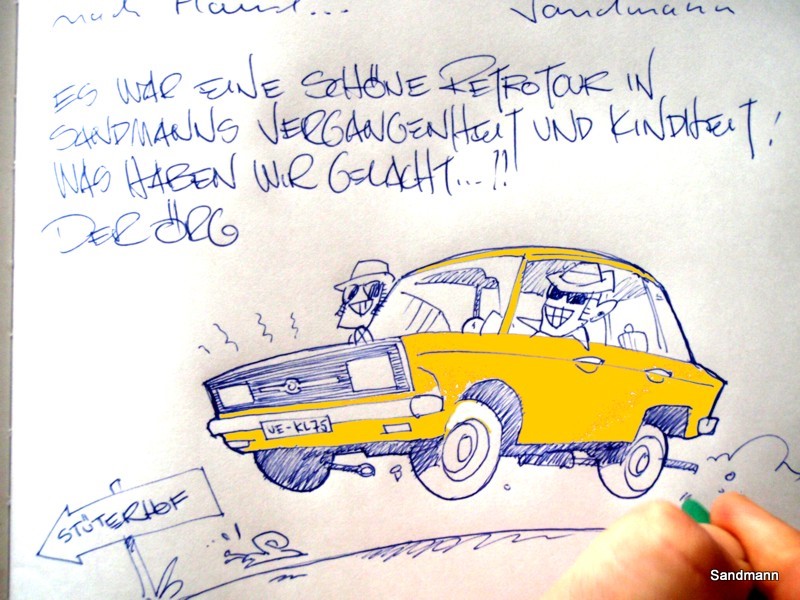 nach Sandmann
ES WAR EINE SCHÖNE RETROTOUR IN
SANDMANNS VERGANGENHEIT UND KINDHEIT!
WAS HABEN WIR GELACHT...!!
DER ÖRG
UE-KL75
STÜTERHOF
Sandmann